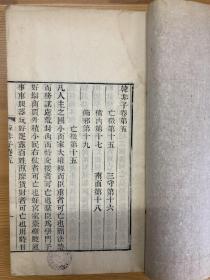 韓非子卷第五
亡徵第十五　三守第十六
備內第十七　南面第十八
飾邪第十九
亡徵第十五
凡人主之國小而家大權輕而臣重者可亡也簡法禁
而務謀慮荒封內而恃交援者可亡也羣臣爲學門子
好辯商賈外積小民右仗者可亡也好宮室臺榭陂池
事車服器玩好罷露百姓煎靡貨財者可亡也用時日
韓非子卷五